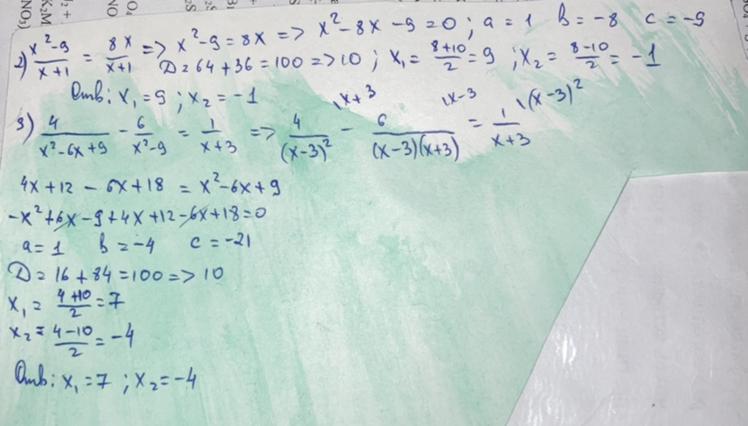 2) x²-9/x+1 = 8x/x+1 => x²-9=8x => x²-8x-9=0; a=1 b=-8 c=-9
D=64+36=100=>10; x₁=8+10/2=9; x₂=8-10/2=-1
Отв: x₁=9; x₂=-1
3) 4/x²-6x+9 - 6/x²-9 = 1/x+3 => 4/(x-3)² \x+3 - 6/(x-3)(x+3) \x-3 = 1/x+3 \(x-3)²
4x+12-6x+18=x²-6x+9
-x²+6x-9+4x+12-6x+18=0
a=1 b=-4 c=-21
D=16+84=100=>10
x₁=4+10/2=7
x₂=4-10/2=-4
Отв: x₁=7; x₂=-4